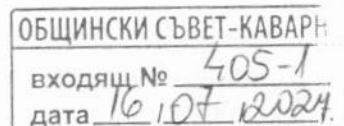 ОБЩИНСКИ СЪВЕТ-КАВАРН
входящ № 405-1
дата 16,07,2024.